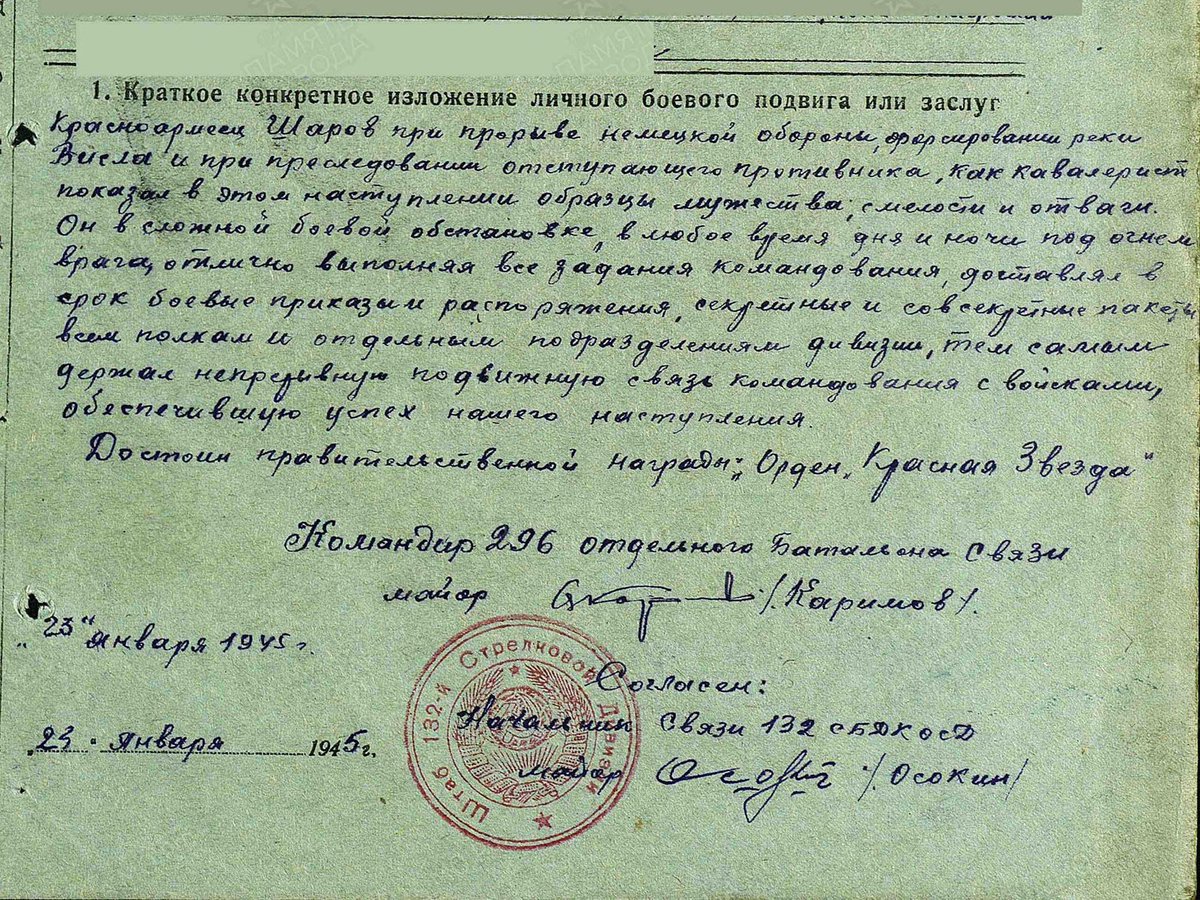 1. Краткое конкретное изложение личного боевого подвига или заслуг
Красноармеец Шаров при прорыве немецкой обороны, форсировании реки
Висла и при преследовании отступающего противника, как кавалерист
показал в этом наступлении образцы мужества, смелости и отваги.
Он в сложной боевой обстановке, в любое время дня и ночи под огнем
врага, отлично выполняя все задания командования, доставлял в
срок боевые приказы и распоряжения, секретные и совсекретные пакеты
всем полкам и отдельным подразделениям дивизии, тем самым
держал непрерывную подвижную связь командования с войсками,
обеспечившую успех нашего наступления.
Достоин правительственной награды: „Орден „Красная Звезда"
Командир 296 отдельного Батальона связи
майор /Каримов/.
„23" января 1945 г.
Согласен:
Начальник Связи 132 СБДКОСД
майор /Осокин/
23 января 1945 г.
Штаб 132-й Стрелковой Дивизии